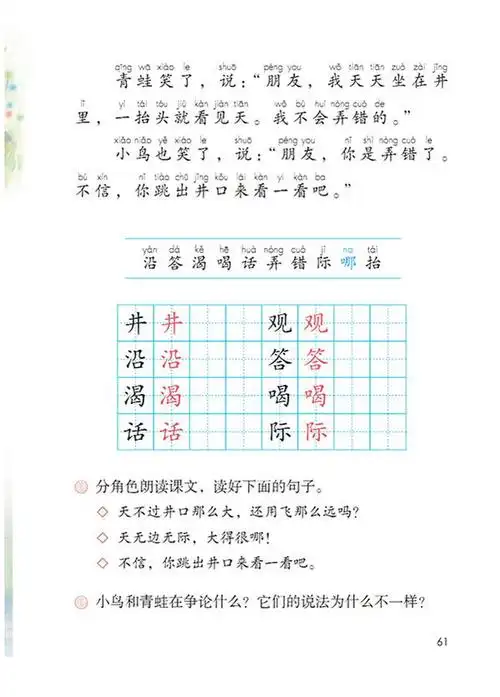 qīng wā xiào le shuō péng you wǒ tiān tiān zuò zài jǐng
青蛙笑了，说：“朋友，我天天坐在井
lǐ yì tái tóu jiù kàn jiàn tiān wǒ bú huì nòng cuò de
里，一抬头就看见天。我不会弄错的。”
xiǎo niǎo yě xiào le shuō péng you nǐ shì nòng cuò le
小鸟也笑了，说：“朋友，你是弄错了。
bú xìn nǐ tiào chū jǐng kǒu lái kàn yí kàn ba
不信，你跳出井口来看一看吧。”
yán dá kě hē huà nòng cuò jì na tái
沿 答 渴 喝 话 弄 错 际 哪 抬
井 井 观 观
沿 沿 答 答
渴 渴 喝 喝
话 话 际 际
分角色朗读课文，读好下面的句子。
◇ 天不过井口那么大，还用飞那么远吗？
◇ 天无边无际，大得很哪！
◇ 不信，你跳出井口来看一看吧。
小鸟和青蛙在争论什么？它们的说法为什么不一样？
61